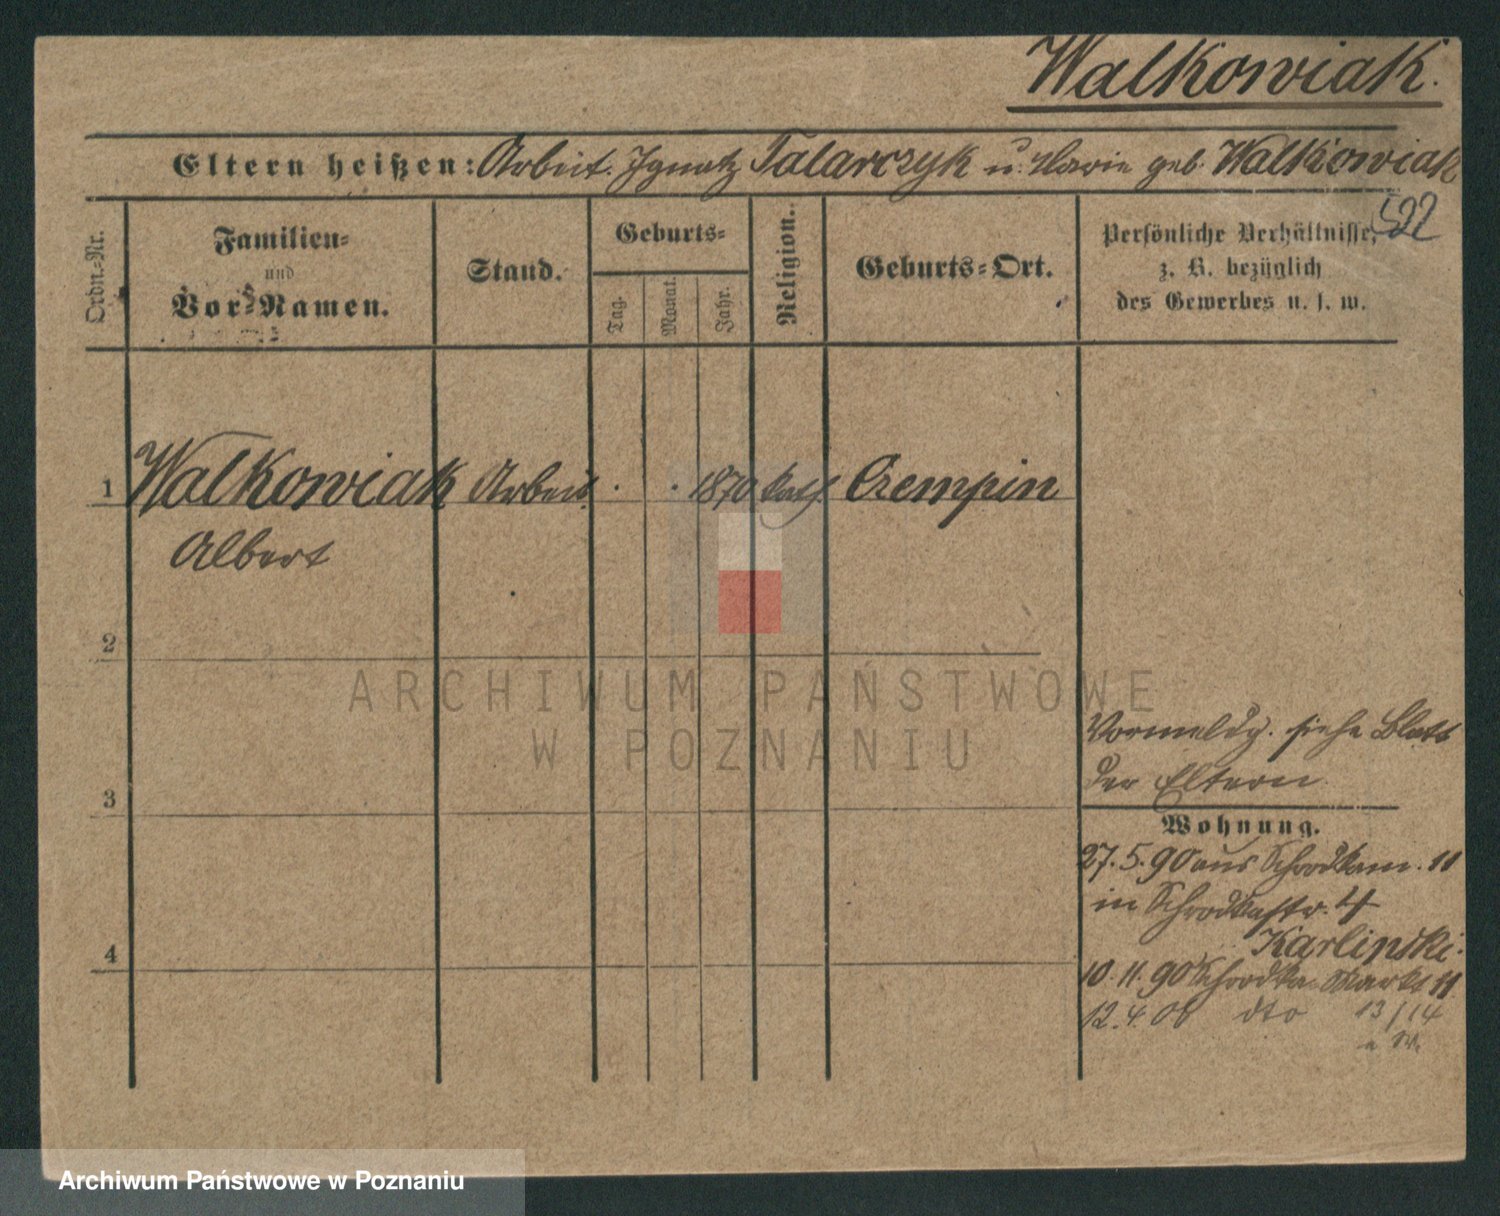 Walkowiak.
Eltern heißen: Arbeit. Ignatz Talarczyk u. Marie geb. Walkowiak
522
Ordn.-Nr.
Familien-
und
Vor-Namen.
Stand.
Geburts-
Tag.
Monat.
Jahr.
Religion.
Geburts-Ort.
Persönliche Verhältnisse,
z. B. bezüglich
des Gewerbes u. s. w.
1 Walkowiak Arbeit. . . 1870 kath. Czempin
Albert
2
ARCHIWUM PAŃSTWOWE
W POZNANIU
Vormeldg. siehe Blatt
der Eltern.
3
Wohnung.
27.5.90 aus Schrodkam. 11
in Schrodkastr. 4
Karlinski.
4
10.11.90 Schrodka Markt 11
12.4.06 dto 13/14
Archiwum Państwowe w Poznaniu